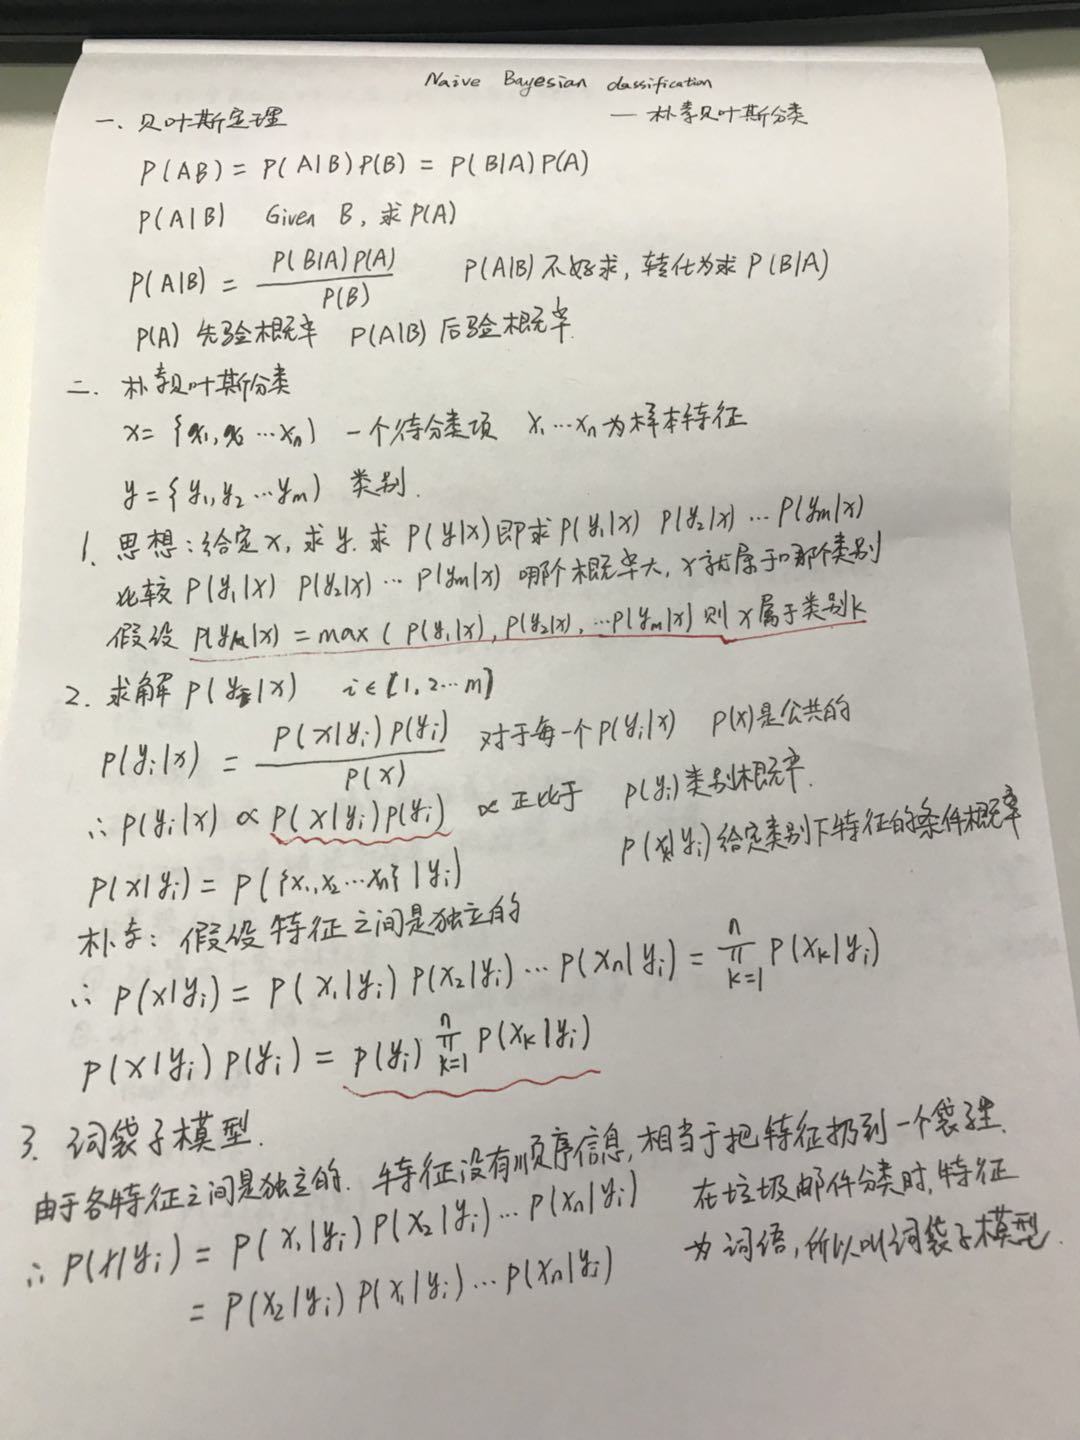 Naive Bayesian classification
一、贝叶斯定理 — 朴素贝叶斯分类
P(AB) = P(A|B)P(B) = P(B|A)P(A)
P(A|B) Given B, 求P(A)
P(A|B) = P(B|A)P(A) / P(B) P(A|B)不好求, 转化为求P(B|A)
P(A) 先验概率 P(A|B)后验概率.
二. 朴素贝叶斯分类
x={x₁, x₂ ⋯xₙ) 一个待分类项 x₁⋯xₙ为样本特征
y={y₁, y₂ ⋯yₘ) 类别.
1. 思想:给定x, 求y. 求P(y|x)即求P(y₁|x) P(y₂|x) ⋯ P(yₘ|x)
比较P(y₁|x) P(y₂|x) ⋯ P(yₘ|x) 哪个概率大, x就属于哪个类别
假设 P(yₖ|x) = max ( P(y₁|x), P(y₂|x), ⋯P(yₘ|x) 则x属于类别k
2. 求解P(yᵢ|x) i∈{1, 2⋯m}
P(yᵢ|x) = P(x|yᵢ)P(yᵢ) / P(x) 对于每一个P(yᵢ|x) P(x)是公共的
∴ P(yᵢ|x) ∝ P(x|yᵢ)P(yᵢ) ∝ 正比于 P(yᵢ)类别概率.
P(x|yᵢ)给定类别下特征的条件概率
P(x|yᵢ) = P({x₁, x₂⋯xₙ}|yᵢ)
朴素: 假设特征之间是独立的
∴ P(x|yᵢ) = P(x₁|yᵢ) P(x₂|yᵢ)⋯ P(xₙ|yᵢ) = ∏ₖ₌₁ⁿ P(xₖ|yᵢ)
P(x|yᵢ) P(yᵢ) = P(yᵢ) ∏ₖ₌₁ⁿ P(xₖ|yᵢ)
3. 词袋子模型.
由于各特征之间是独立的. 特征没有顺序信息, 相当于把特征扔到一个袋子里.
∴ P(x|yᵢ) = P(x₁|yᵢ) P(x₂|yᵢ)⋯ P(xₙ|yᵢ) 在垃圾邮件分类时, 特征
= P(x₂|yᵢ) P(x₁|yᵢ)⋯ P(xₙ|yᵢ) 为词语, 所以叫词袋子模型.